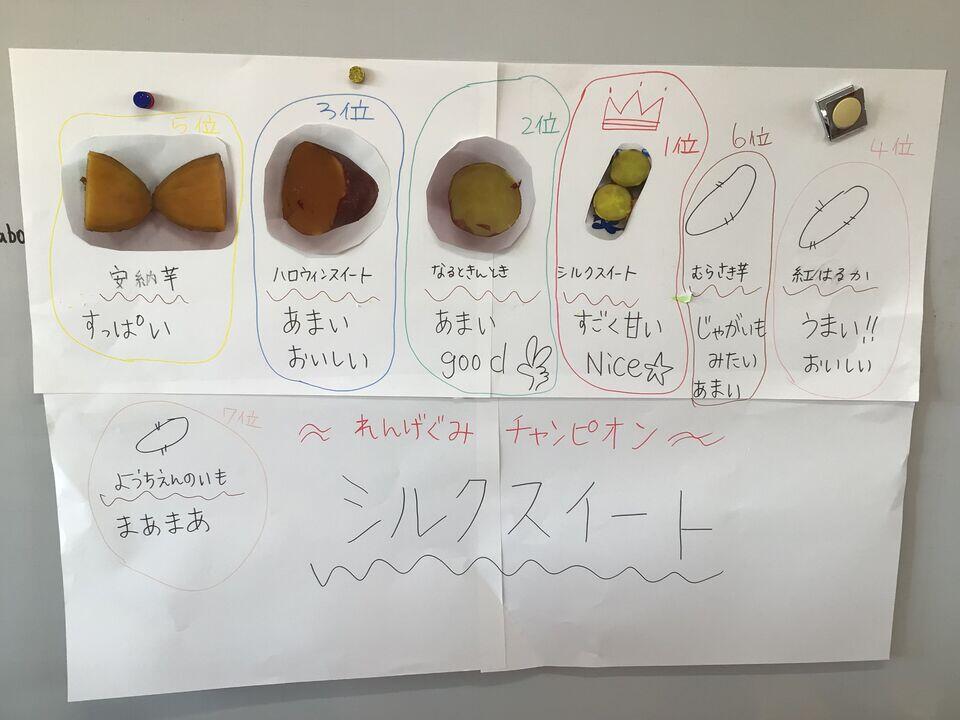 5位
安納芋
すっぱい
3位
ハロウィンスイート
あまい
おいしい
2位
なるときんとき
あまい
good
1位
シルクスイート
すごく甘い
Nice☆
6位
むらさき芋
じゃがいも
みたい
あまい
4位
紅はるか
うまい!!
おいしい
7位
ようちえんのいも
まあまあ
〜れんげぐみ チャンピオン〜
シルクスイート